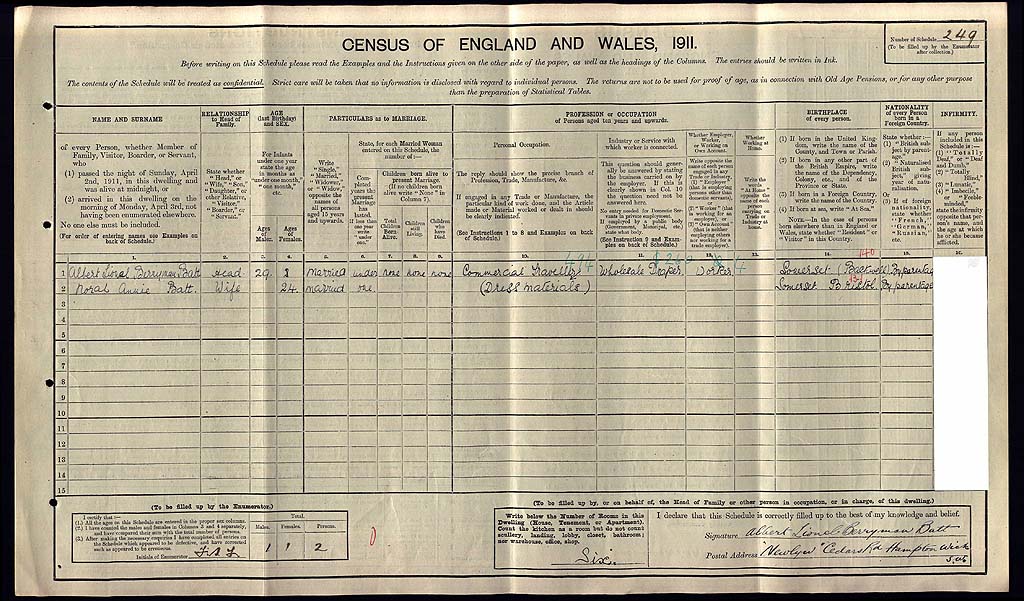 CENSUS OF ENGLAND AND WALES, 1911.
Number of Schedule 249
(To be filled up by the Enumerator after collection.)
Before writing on this Schedule please read the Examples and the Instructions given on the other side of the paper, as well as the headings of the Columns. The entries should be written in Ink.
The contents of the Schedule will be treated as confidential. Strict care will be taken that no information is disclosed with regard to individual persons. The returns are not to be used for proof of age, as in connection with Old Age Pensions, or for any other purpose
than the preparation of Statistical Tables.
NAME AND SURNAME
of every Person, whether Member of
Family, Visitor, Boarder, or Servant,
who
(1) passed the night of Sunday, April
2nd, 1911, in this dwelling and
was alive at midnight, or
(2) arrived in this dwelling on the
morning of Monday, April 3rd, not
having been enumerated elsewhere.
No one else must be included.
(For order of entering names see Examples on
back of Schedule.)
RELATIONSHIP
to Head of
Family.
State whether
"Head," or
"Wife," "Son,"
"Daughter," or
other Relative,
"Visitor,"
"Boarder," or
"Servant."
AGE
(last Birthday)
and SEX.
For Infants
under one year
state the age
in months as
"under one month,"
"one month,"
etc.
Ages
of
Males.
Ages
of
Females.
PARTICULARS as to MARRIAGE.
Write
"Single,"
"Married,"
"Widower,"
or "Widow,"
opposite the
names of
all persons
aged 15 years
and upwards.
State, for each Married Woman
entered on this Schedule, the
number of:—
Completed
years the
present
Marriage
has
lasted.
If less than
one year
write
"under
one."
Children born alive to
present Marriage.
(If no children born
alive write "None" in
Column 7).
Total
Children
Born
Alive.
Children
still
Living.
Children
who
have
Died.
PROFESSION or OCCUPATION
of Persons aged ten years and upwards.
Personal Occupation.
The reply should show the precise branch of
Profession, Trade, Manufacture, &c.
If engaged in any Trade or Manufacture, the
particular kind of work done, and the Article
made or Material worked or dealt in should
be clearly indicated.
(See Instructions 1 to 8 and Examples on back
of Schedule.)
Industry or Service with
which worker is connected.
This question should generally
be answered by stating
the business carried on by
the employer. If this is
clearly shown in Col. 10
the question need not be
answered here.
No entry needed for Domestic Servants
in private employment.
If employed by a public body
(Government, Municipal, etc.)
state what body.
(See Instruction 9 and Examples
on back of Schedule.)
Whether Employer,
Worker, or
Working on
Own Account.
Write opposite the
name of each person
engaged in any
Trade or Industry,
(1) "Employer"
(that is employing
persons other than
domestic servants),
or
(2) "Worker" (that is
working for an
employer), or
(3) "Own Account"
(that is neither
employing others
nor working for a
trade employer).
Whether
Working at
Home.
Write the
words
"At Home"
opposite the
name of each
person
carrying on
Trade or
Industry at
home.
BIRTHPLACE
of every person.
(1) If born in the United Kingdom,
write the name of the
County, and Town or Parish.
(2) If born in any other part of
the British Empire, write
the name of the Dependency,
Colony, etc., and of the
Province or State.
(3) If born in a Foreign Country,
write the name of the Country.
(4) If born at sea, write "At Sea."
NOTE.—In the case of persons
born elsewhere than in England or
Wales, state whether "Resident" or
"Visitor" in this Country.
NATIONALITY
of every Person
born in a
Foreign Country.
State whether:—
(1) "British
subject by
parentage."
(2) "Naturalised
British subject,"
giving
year of naturalisation.
(3) If of foreign
nationality,
state whether
"French,"
"German,"
"Russian,"
etc.
INFIRMITY.
If any person
included in this
Schedule is:—
(1) "Totally
Deaf," or "Deaf
and Dumb,"
(2) "Totally
Blind,"
(3) "Lunatic,"
(4) "Imbecile,"
or "Feeble-minded,"
state the infirmity
opposite that person's
name, and
the age at which
he or she became
afflicted.
1. 2. 3. 4. 5. 6. 7. 8. 9. 10. 11. 12. 13. 14. 15. 16.
1 Albert Lionel Berryman Batt Head 29. married under none none none Commercial Traveller Wholesale Draper. Worker Somerset (Backwell) By parentage
2 Norah Annie Batt. Wife 24. married one. (Dress materials) Somerset Bristol. By parentage
3
4
5
6
7
8
9
10
11
12
13
14
15
(To be filled up by the Enumerator.)
I certify that:—
(1.) All the ages on this Schedule are entered in the proper sex columns.
(2.) I have counted the males and females in Columns 3 and 4 separately,
and have compared their sum with the total number of persons.
(3.) After making the necessary enquiries I have completed all entries on
the Schedule which appeared to be defective, and have corrected
such as appeared to be erroneous.
Initials of Enumerator
Total.
Males. Females. Persons.
1 1 2
(To be filled up by, or on behalf of, the Head of Family or other person in occupation, or in charge, of this dwelling.)
Write below the Number of Rooms in this
Dwelling (House, Tenement, or Apartment).
Count the kitchen as a room but do not count
scullery, landing, lobby, closet, bathroom;
nor warehouse, office, shop.
Six.
I declare that this Schedule is correctly filled up to the best of my knowledge and belief.
Signature Albert Lionel Berryman Batt
Postal Address "Newlyn" Cedars Rd Hampton Wick